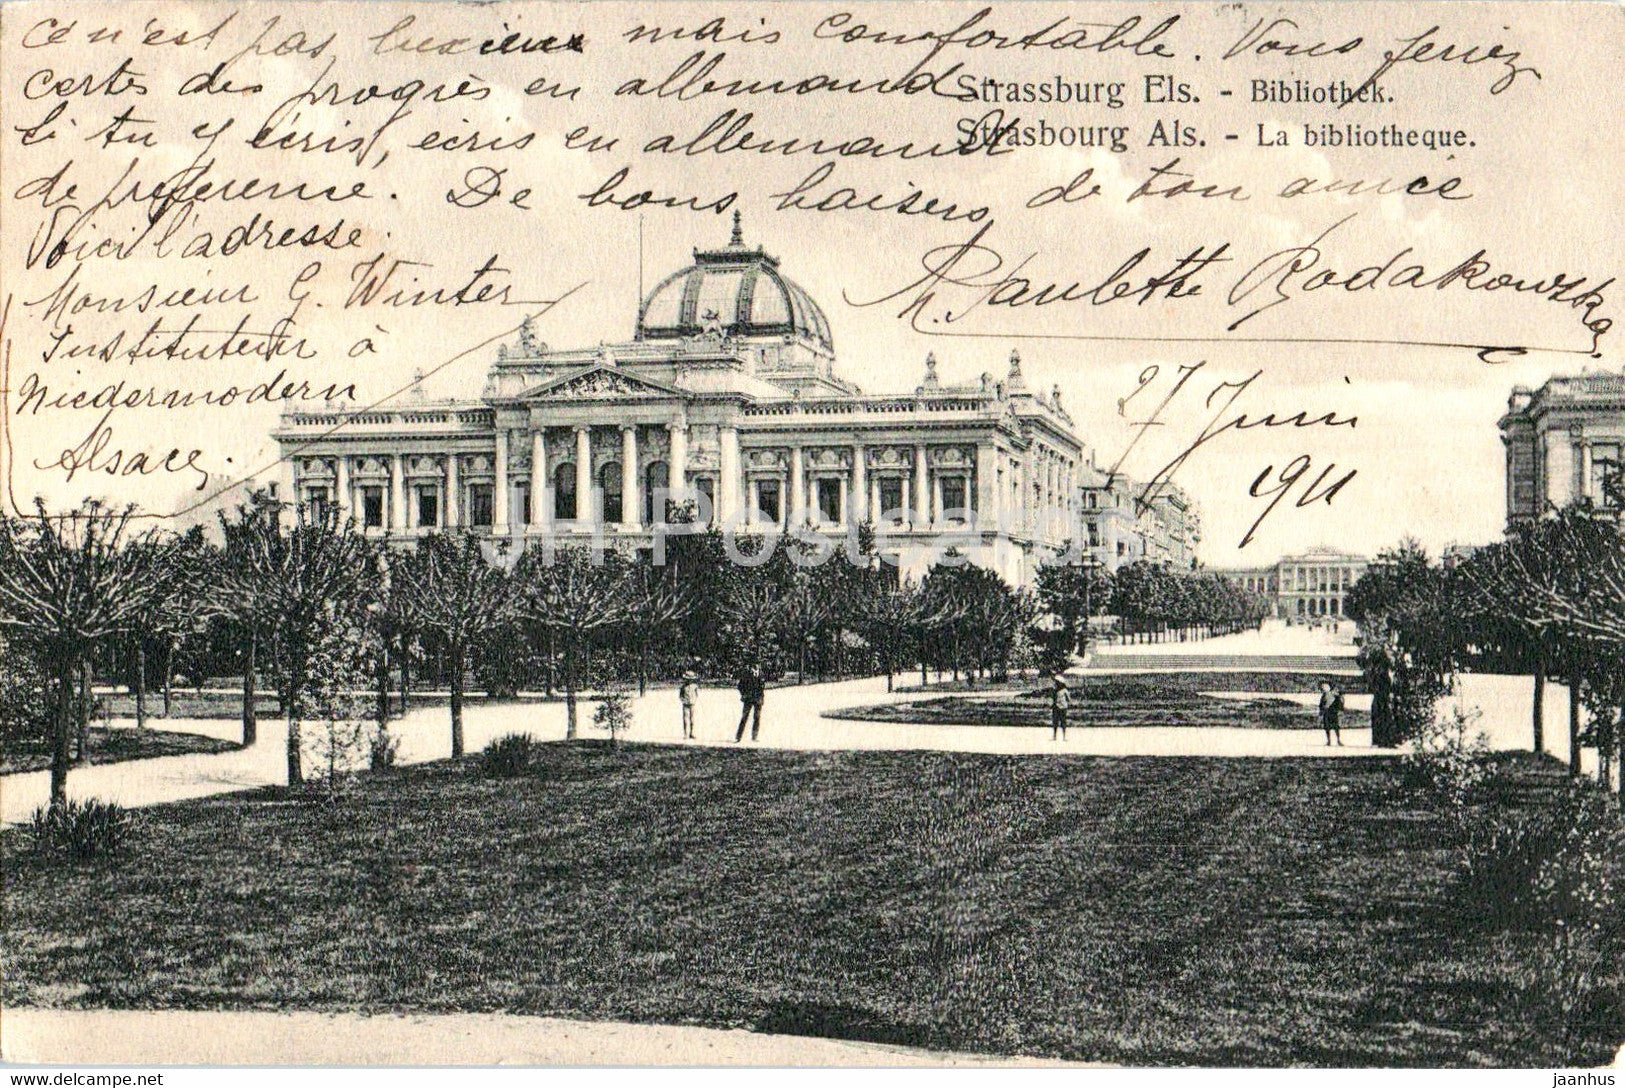 ce n'est pas luxieux mais comfortable. Vous feriez
certes des progrès en allemand.
Si tu y écris, écris en allemand
de préférence. De bons baisers de ton amie
Strassburg Els. - Bibliothek.
Strasbourg Als. - La bibliotheque.
Voici l'adresse.
Monsieur G. Winter
Instituteur à
Niedermodern
Alsace.
Paulette Rodakowska
27 Juin
1911
JH Postcards
www.delcampe.net
jaanhus